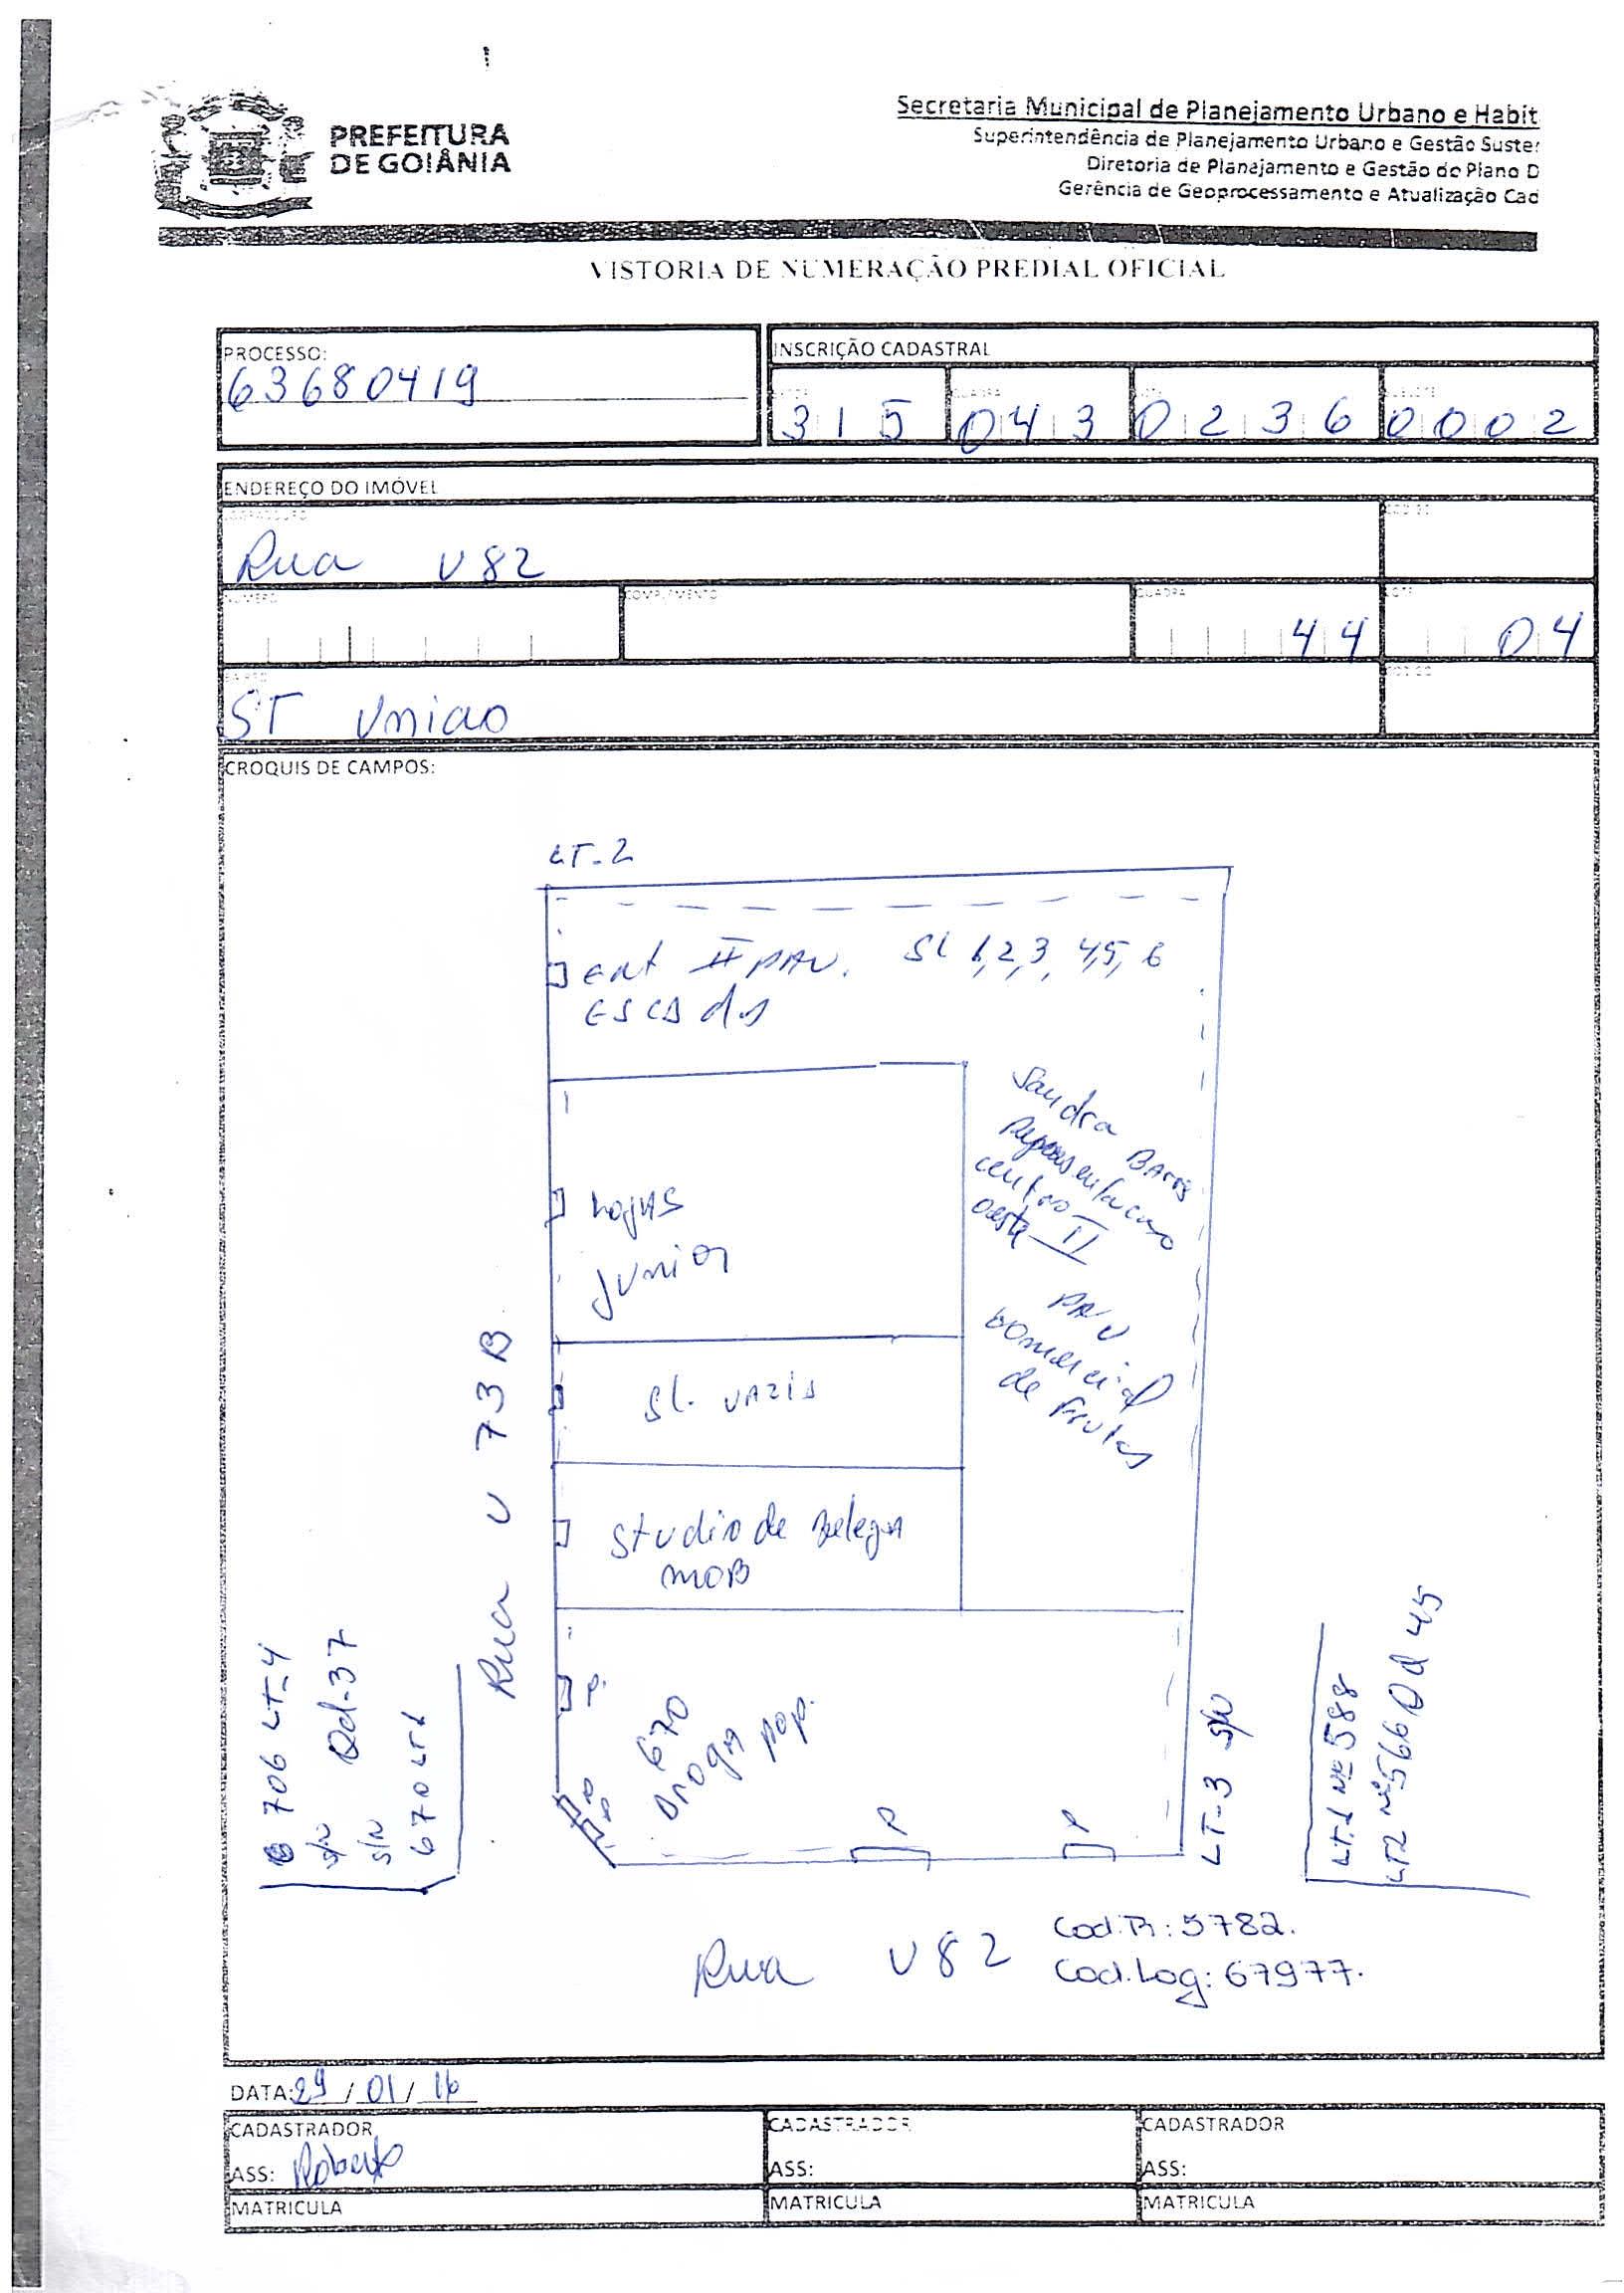 PREFEITURA
DE GOIÂNIA
Secretaria Municipal de Planejamento Urbano e Habit
Superintendência de Planejamento Urbano e Gestão Suste
Diretoria de Planejamento e Gestão do Plano D
Gerência de Geoprocessamento e Atualização Cad
VISTORIA DE NUMERAÇÃO PREDIAL OFICIAL
PROCESSO:
63680419
INSCRIÇÃO CADASTRAL
QUADRA
315 043 0236 0002
ENDEREÇO DO IMÓVEL
LOGRADOURO
CODIGO
Rua V82
NUMERO
COMPLEMENTO
QUADRA
LOTE
44
04
BAIRRO
CODIGO
ST Uniao
CROQUIS DE CAMPOS:
LT-2
Ent II PAV. SL 1,2,3,4,5,6
Sandra Barros
Representacao
centro
oeste II
PAV
Lojas
Junior
comercial
de Frutas
Rua V 73 B
SL. VAZIA
Studio de Beleza
MOB
706 LT-4
S/N Qd-37
S/N
670 LT1
P.
670
Droga Pop.
P P
LT-3 S/N
LT.1 Nº 588
LT2 Nº 566 Qd 45
Rua V82
Cod.B: 5782.
Cod.Log: 67977.
DATA: 29/01/16
CADASTRADOR
ASS: Roberto
MATRICULA
CADASTRADOR
ASS:
MATRICULA
CADASTRADOR
ASS:
MATRICULA